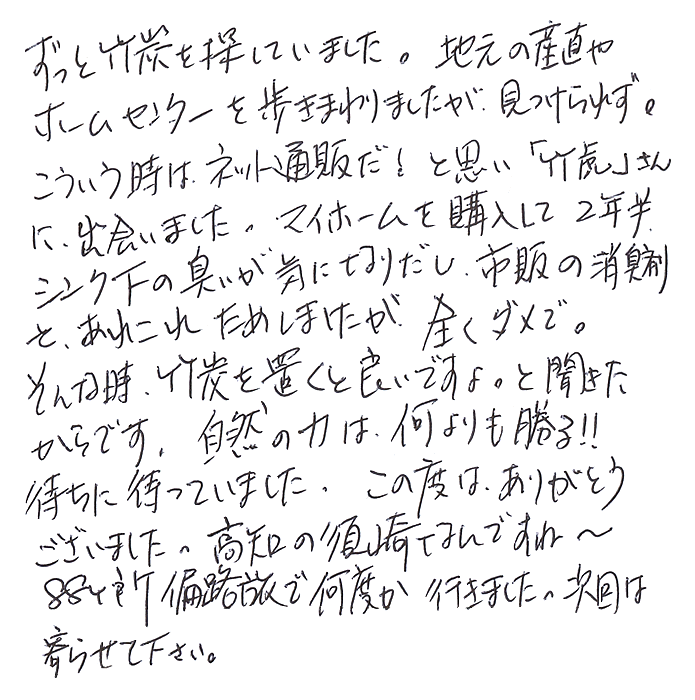 ずっと竹炭を探していました。地元の産直や
ホームセンターを歩きまわりましたが、見つけられず。
こういう時は、ネット通販だ！と思い「竹虎」さん
に、出会いました。マイホームを購入して2年半、
シンク下の臭いが気になりだし、市販の消臭剤
を、あれこれためしましたが、全くダメで。
そんな時、竹炭を置くと良いですよ。と聞きた
からです。自然の力は、何よりも勝る!!
待ちに待っていました。この度は、ありがとう
ございました。高知の須崎なんですね〜
88ヶ所偏路旅で何度か行きました。次回は
寄らせて下さい。